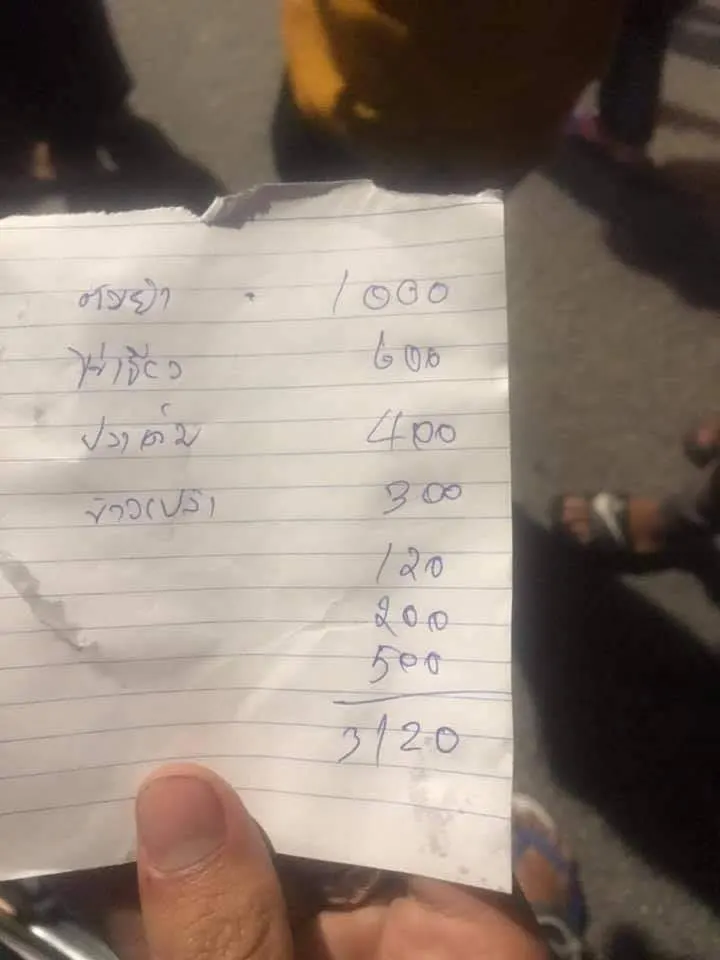 ต้มยำ 1000
ไข่เจียว 600
ปลาต้ม 400
ข้าวเปล่า 300
120
200
500
3120